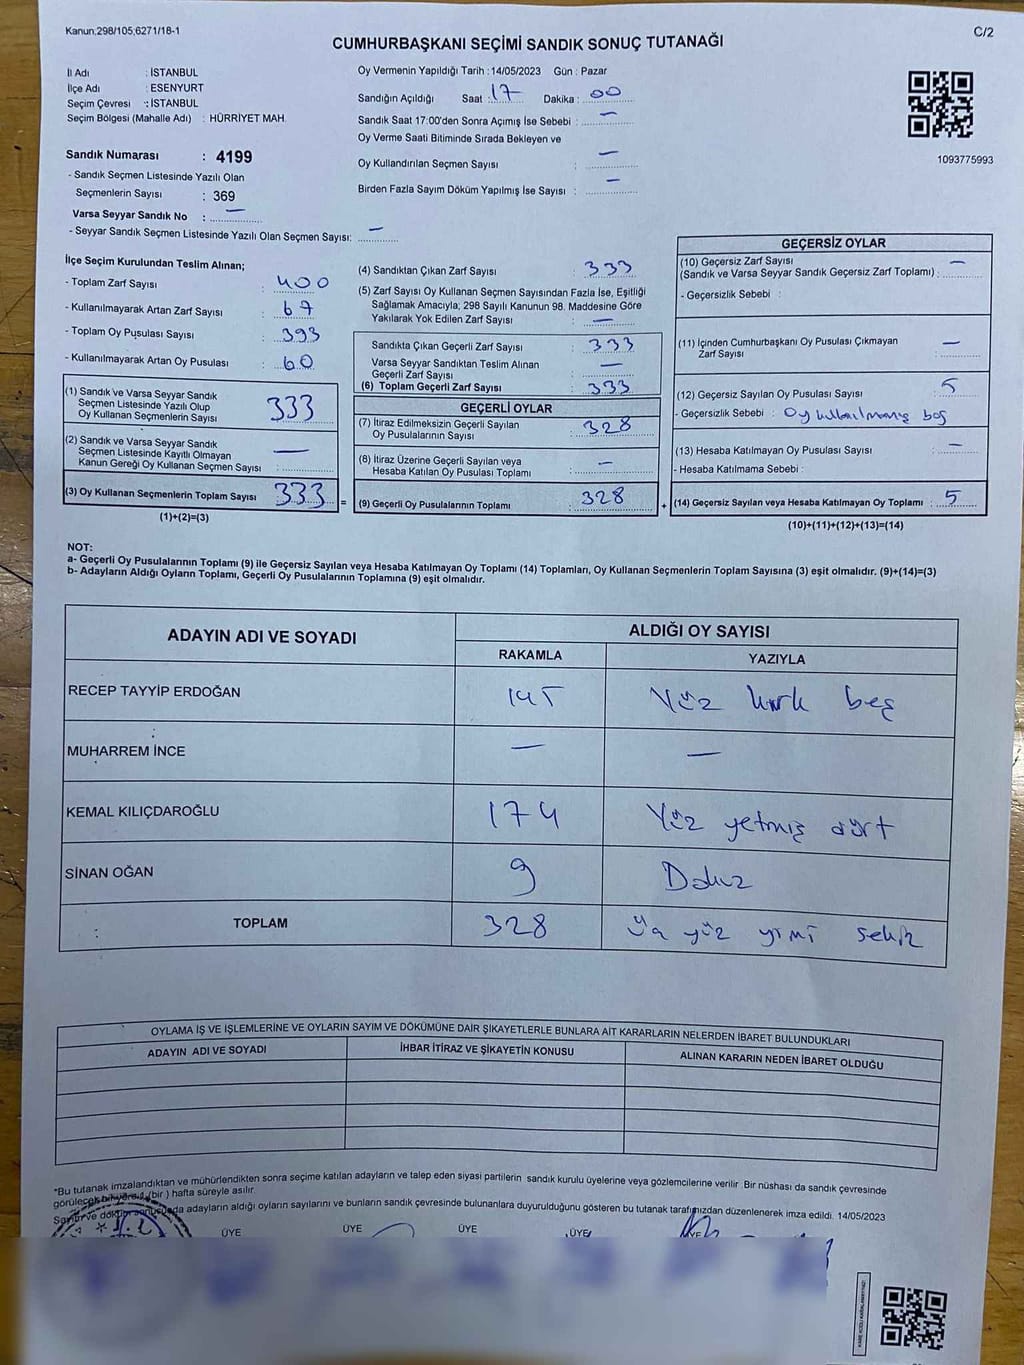 Kanun;298/105;6271/18-1
C/2
CUMHURBAŞKANI SEÇİMİ SANDIK SONUÇ TUTANAĞI
İl Adı : İSTANBUL
İlçe Adı : ESENYURT
Seçim Çevresi : İSTANBUL
Seçim Bölgesi (Mahalle Adı) : HÜRRİYET MAH.
Oy Vermenin Yapıldığı Tarih : 14/05/2023 Gün : Pazar
Sandığın Açıldığı Saat : 17 Dakika : 00
Sandık Saat 17:00'den Sonra Açımış İse Sebebi : —
Oy Verme Saati Bitiminde Sırada Bekleyen ve
Oy Kullandırılan Seçmen Sayısı : —
Birden Fazla Sayım Döküm Yapılmış İse Sayısı : —
1093775993
Sandık Numarası : 4199
- Sandık Seçmen Listesinde Yazılı Olan
Seçmenlerin Sayısı : 369
Varsa Seyyar Sandık No : —
- Seyyar Sandık Seçmen Listesinde Yazılı Olan Seçmen Sayısı: —
İlçe Seçim Kurulundan Teslim Alınan;
- Toplam Zarf Sayısı : 400
- Kullanılmayarak Artan Zarf Sayısı : 67
- Toplam Oy Pusulası Sayısı : 393
- Kullanılmayarak Artan Oy Pusulası : 60
(1) Sandık ve Varsa Seyyar Sandık
Seçmen Listesinde Yazılı Olup
Oy Kullanan Seçmenlerin Sayısı : 333
(2) Sandık ve Varsa Seyyar Sandık
Seçmen Listesinde Kayıtlı Olmayan
Kanun Gereği Oy Kullanan Seçmen Sayısı : —
(3) Oy Kullanan Seçmenlerin Toplam Sayısı : 333
(1)+(2)=(3)
(4) Sandıktan Çıkan Zarf Sayısı : 333
(5) Zarf Sayısı Oy Kullanan Seçmen Sayısından Fazla İse, Eşitliği
Sağlamak Amacıyla; 298 Sayılı Kanunun 98. Maddesine Göre
Yakılarak Yok Edilen Zarf Sayısı : —
Sandıkta Çıkan Geçerli Zarf Sayısı : 333
Varsa Seyyar Sandıktan Teslim Alınan
Geçerli Zarf Sayısı : —
(6) Toplam Geçerli Zarf Sayısı : 333
GEÇERLİ OYLAR
(7) İtiraz Edilmeksizin Geçerli Sayılan
Oy Pusulalarının Sayısı : 328
(8) İtiraz Üzerine Geçerli Sayılan veya
Hesaba Katılan Oy Pusulası Toplamı : —
= (9) Geçerli Oy Pusulalarının Toplamı : 328
GEÇERSİZ OYLAR
(10) Geçersiz Zarf Sayısı
(Sandık ve Varsa Seyyar Sandık Geçersiz Zarf Toplamı) : —
- Geçersizlik Sebebi :
(11) İçinden Cumhurbaşkanı Oy Pusulası Çıkmayan
Zarf Sayısı : —
(12) Geçersiz Sayılan Oy Pusulası Sayısı : 5
- Geçersizlik Sebebi : Oy kullanılmamış boş
(13) Hesaba Katılmayan Oy Pusulası Sayısı : —
- Hesaba Katılmama Sebebi :
+ (14) Geçersiz Sayılan veya Hesaba Katılmayan Oy Toplamı : 5
(10)+(11)+(12)+(13)=(14)
NOT:
a- Geçerli Oy Pusulalarının Toplamı (9) ile Geçersiz Sayılan veya Hesaba Katılmayan Oy Toplamı (14) Toplamları, Oy Kullanan Seçmenlerin Toplam Sayısına (3) eşit olmalıdır. (9)+(14)=(3)
b- Adayların Aldığı Oyların Toplamı, Geçerli Oy Pusulalarının Toplamına (9) eşit olmalıdır.
ADAYIN ADI VE SOYADI ALDIĞI OY SAYISI
RAKAMLA YAZIYLA
RECEP TAYYİP ERDOĞAN 145 Yüz kırk beş
MUHARREM İNCE — —
KEMAL KILIÇDAROĞLU 174 Yüz yetmiş dört
SİNAN OĞAN 9 Dokuz
TOPLAM 328 Üç yüz yirmi sekiz
OYLAMA İŞ VE İŞLEMLERİNE VE OYLARIN SAYIM VE DÖKÜMÜNE DAİR ŞİKAYETLERLE BUNLARA AİT KARARLARIN NELERDEN İBARET BULUNDUKLARI
ADAYIN ADI VE SOYADI İHBAR İTİRAZ VE ŞİKAYETİN KONUSU ALINAN KARARIN NEDEN İBARET OLDUĞU
*Bu tutanak imzalandıktan ve mühürlendikten sonra seçime katılan adayların ve talep eden siyasi partilerin sandık kurulu üyelerine veya gözlemcilerine verilir. Bir nüshası da sandık çevresinde
görülecek bir yere 1 (bir ) hafta süreyle asılır.
Sayım ve döküm sonucunda adayların aldığı oyların sayılarını ve bunların sandık çevresinde bulunanlara duyurulduğunu gösteren bu tutanak tarafımızdan düzenlenerek imza edildi. 14/05/2023
ÜYE ÜYE ÜYE ÜYE ÜYE